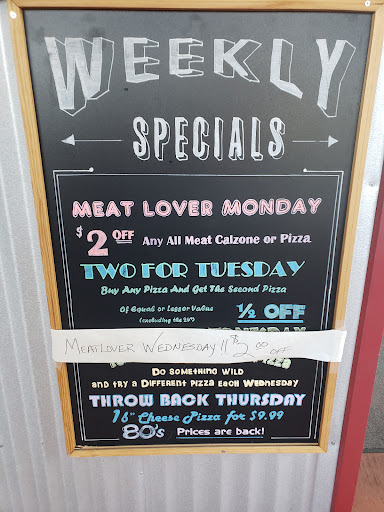 WEEKLY
SPECIALS
MEAT LOVER MONDAY
$2 OFF Any All Meat Calzone or Pizza
TWO FOR TUESDAY
Buy Any Pizza And Get The Second Pizza
Of Equal or Lesser Value 1/2 OFF
(excluding the 28")
MEATLOVER WEDNESDAY!! $2.00 OFF
DO SOMETHING WILD
AND TRY A DIFFERENT PIZZA EACH WEDNESDAY
THROW BACK THURSDAY
16" Cheese Pizza for $9.99
80's Prices are back!